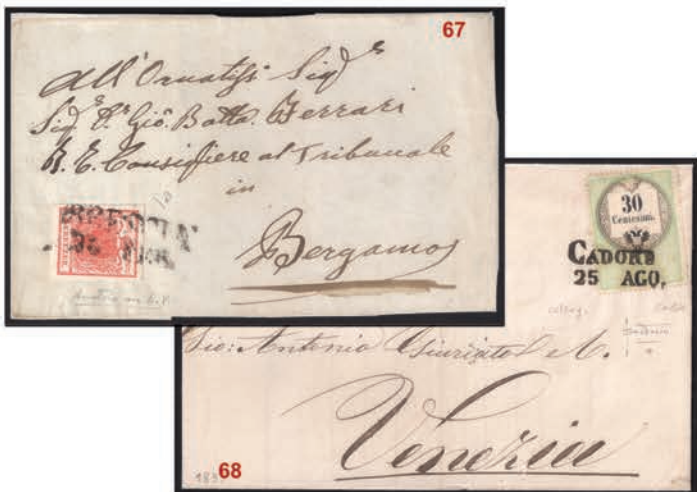 67
All'Ornatiss Sigr
Sigr Dr Gio. Batta. Ferrari
R. C. Consigliere al Tribunale
in
Bergamo
10
BRESCIA
FEB.
30
Centesimi
CADORE
25 AGO.
Sig: Antonio
Venezia
68